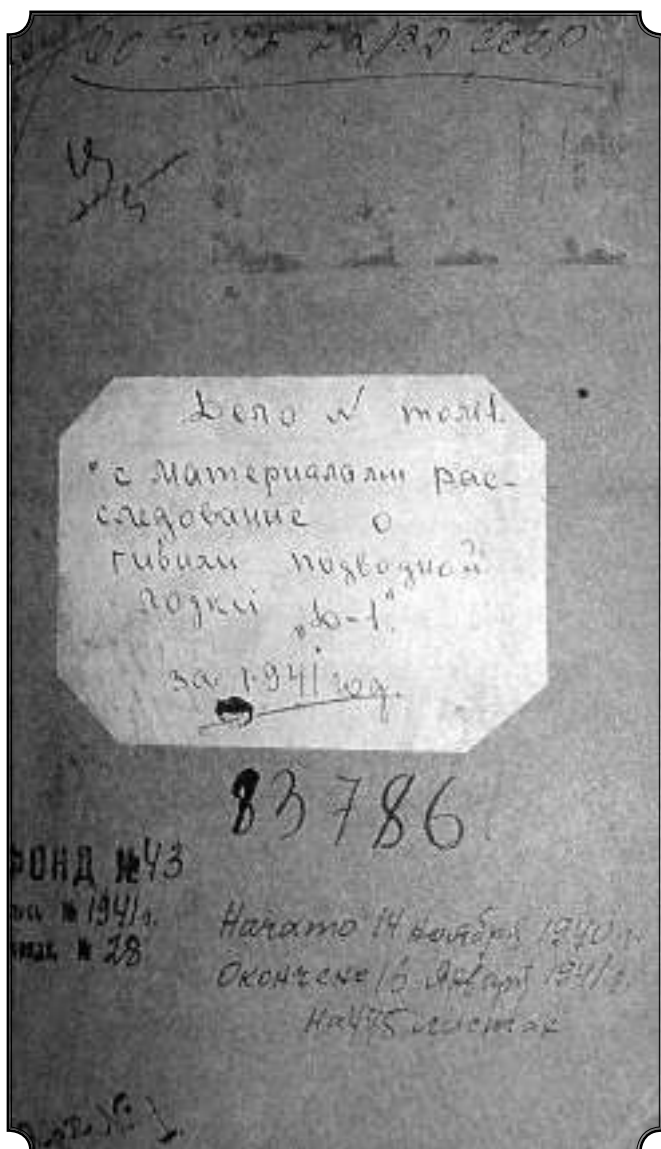 Дело № том 1.
"с материалами рас-
следование о
гибели подводной
лодки „Д-1".
за 1941 год.
83786
ФОНД № 43
№ 1941 г.
№ 28
Начато 14 ноября 1940 г.
Окончено 13 Января 1941 г.
На 475 листах